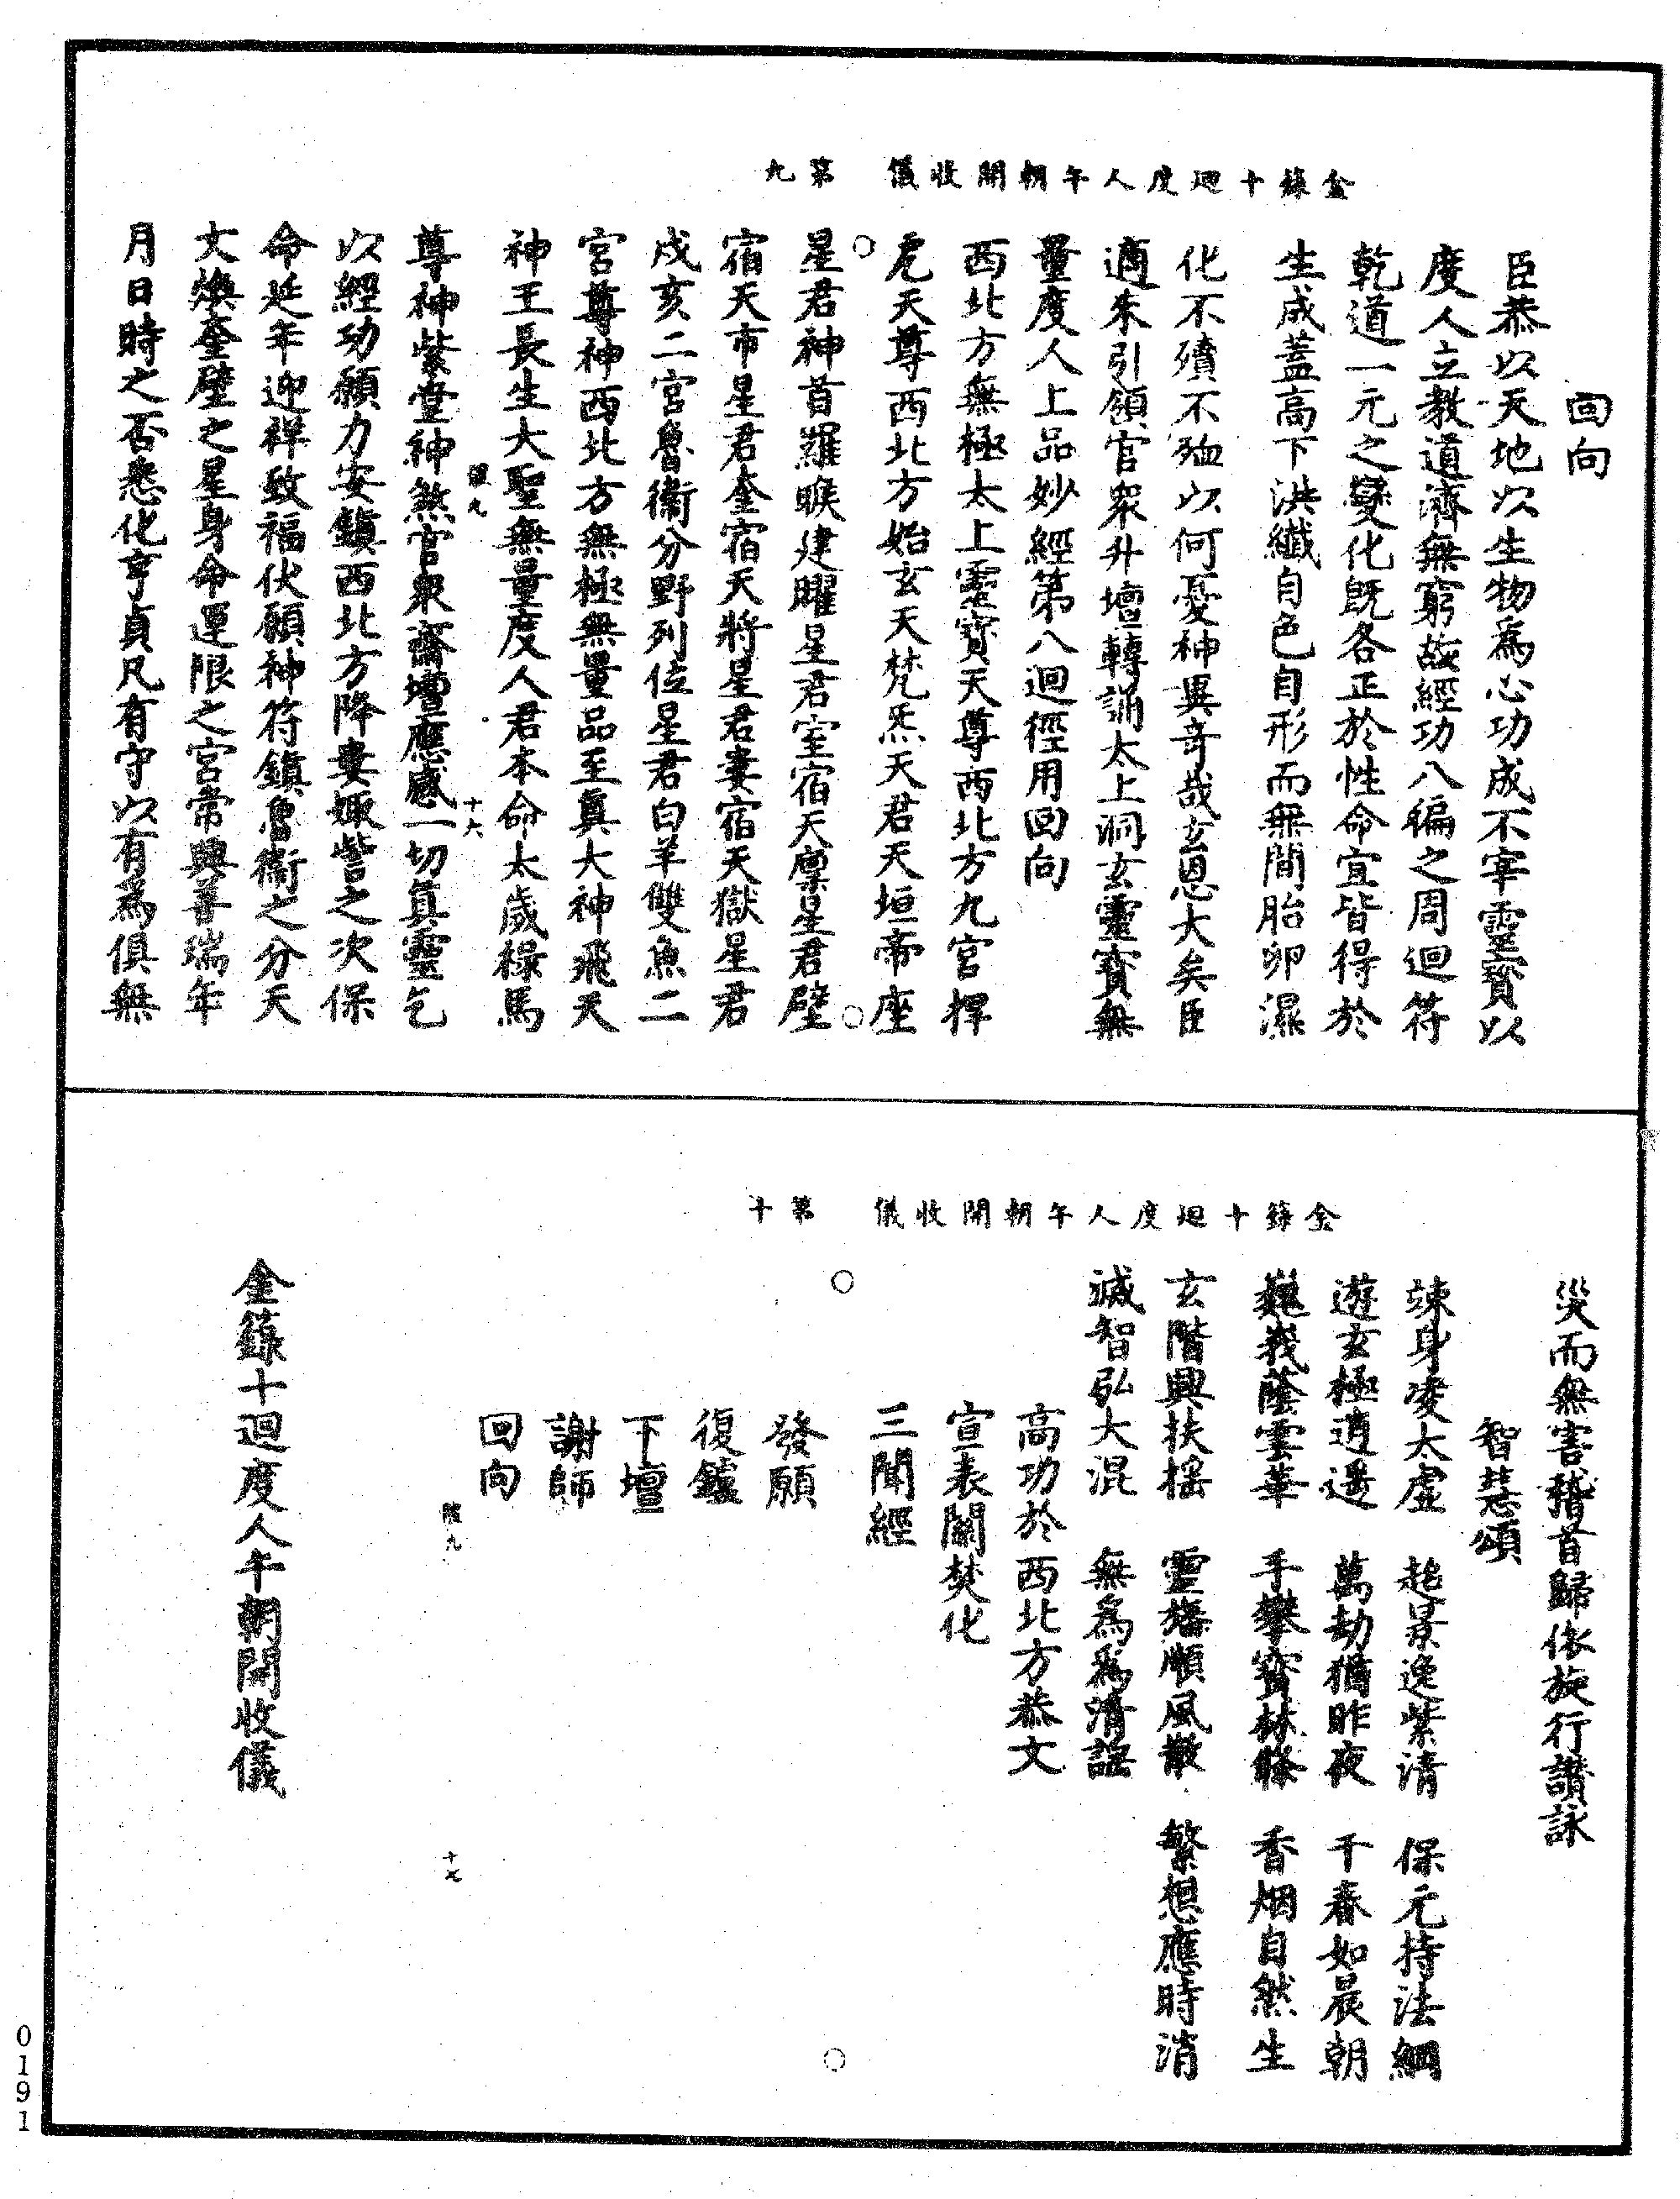 金籙十迴度人午朝開收儀　第九
回向
臣恭以天地以生物爲心功成不宰靈寶以
度人立教道濟無窮故經功八徧之周迴符
乾道一元之變化旣各正於性命宜皆得於
生成蓋高下洪纖自色自形而無間胎卵濕
化不殰不殈以何憂神異奇哉玄恩大矣臣
適來引領官衆升壇轉誦太上洞玄靈寶無
量度人上品妙經第八迴徑用回向
西北方無極太上靈寶天尊西北方九宮捍
虎天尊西北方始玄天梵炁天君天垣帝座
星君神首羅睺建曜星君室宿天廩星君壁
宿天市星君奎宿天將星君婁宿天獄星君
戌亥二宮魯衞分野列位星君白羊雙魚二
宮尊神西北方無極無量品至真大神飛天
神王長生大聖無量度人君本命太歲祿馬
九
十六
尊神紫堂神煞官衆齋壇應感一切真靈乞
以經功願力安鎮西北方降婁娵訾之次保
命延年迎祥致福伏願神符鎮魯衞之分天
文煥奎壁之星身命運限之宮常興善瑞年
月日時之否悉化亨貞凡有守以有爲俱無
金籙十迴度人午朝開收儀　第十
災而無害稽首歸依旋行讚詠
智慧頌
竦身凌太虛　起景逸紫清　保元持法綱
遊玄極逍遥　萬劫猶昨夜　千春如晨朝
巍峩蔭雲華　手攀寳林條　香烟自然生
玄階興扶搖　靈旛順風散　繁想應時消
滅智弘大混　無爲爲清謡
高功於西北方恭文
宣表關焚化
三聞經
發願
復鑪
下壇
謝師
回向
九
十七
金籙十迴度人午朝開收儀
0191